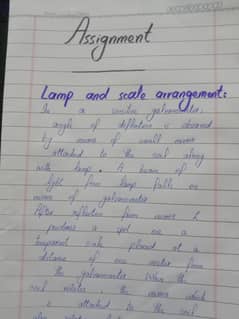 Assignment
Lamp and scale arrangement:
In a sensitive galvanometer,
angle of deflection is observed
by means of small mirror
attached to the coil along
with lamp. A beam of
light from lamp falls on
mirror of galvanometer
After reflection from mirror it
produces a spot on a
scale placed at a
distance of one meter from
the galvanometer. When the
coil rotates the mirror which
is attached to the coil
also